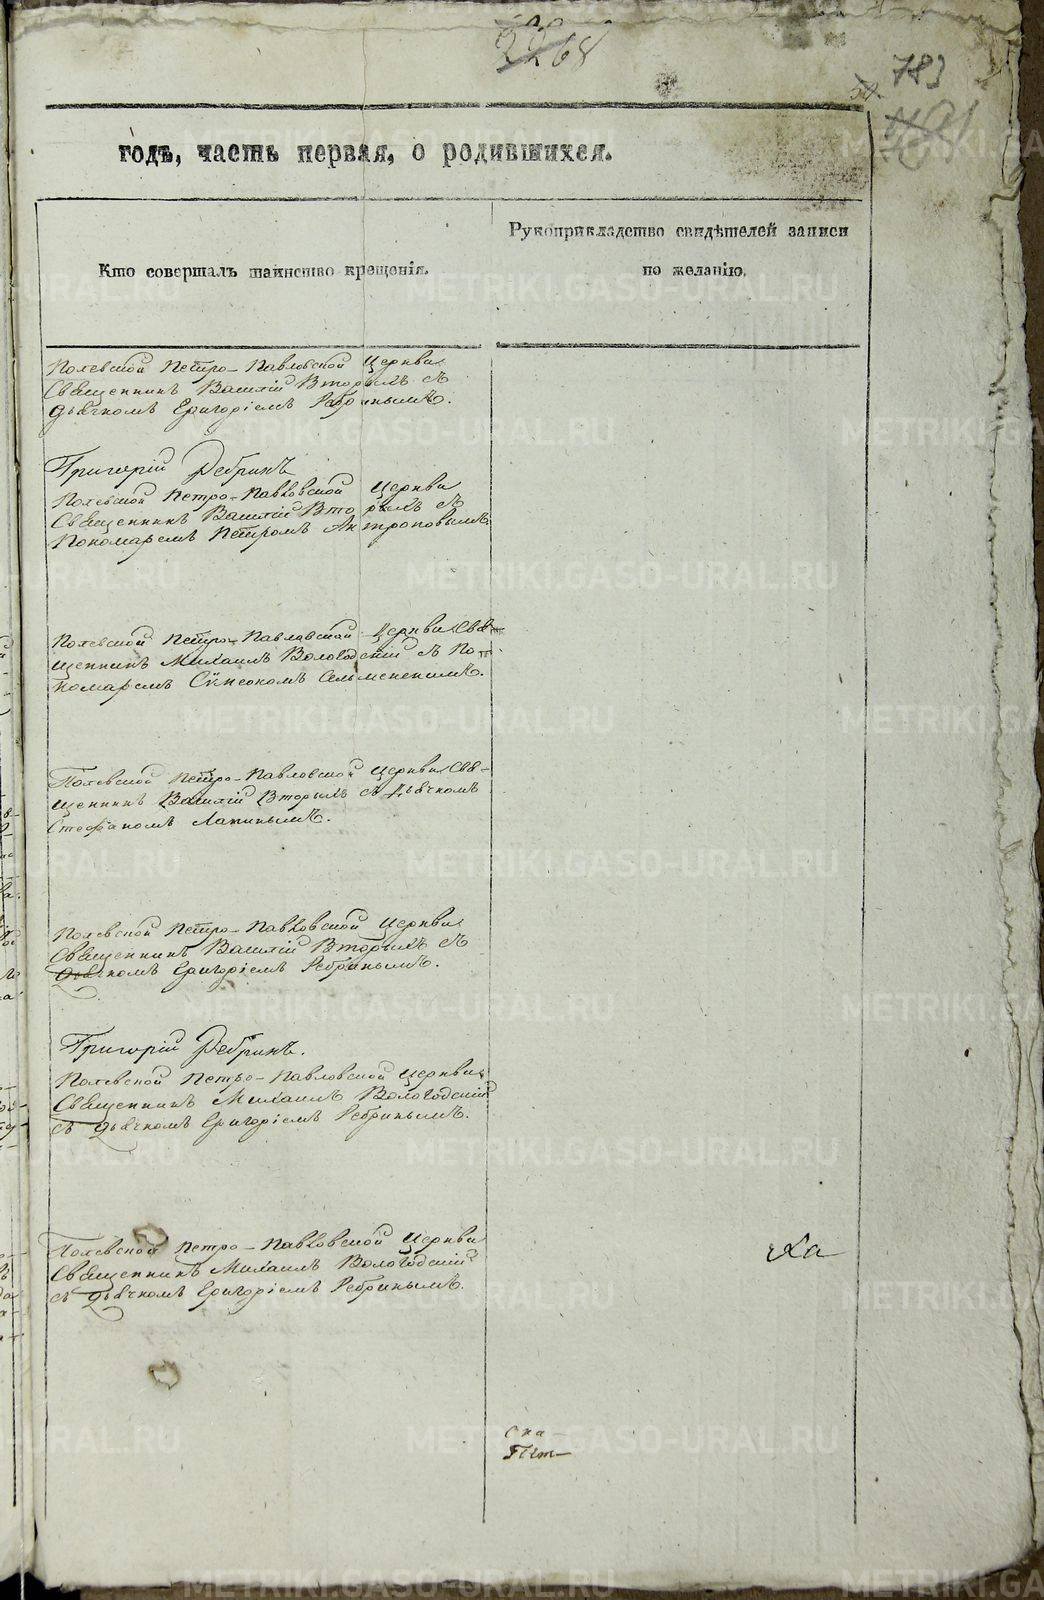 68
783
годъ, часть первая, о родившихся.
Кто совершалъ таинство крещенія.
Рукоприкладство свидѣтелей записи
по желанію.
Полевской Петро-Павловской Церкви
Священникъ Василій Вторыхъ съ
Дьячкомъ Григоріемъ Ребринымъ.
Григорій Ребринъ
Полевской Петро-Павловской Церкви
Священникъ Василій Вторыхъ съ
Пономаремъ Петромъ Антроповымъ
Полевской Петро-Павловской Церкви Свя-
щенникъ Михаилъ Вологодскій съ По-
номаремъ Сѵмеономъ
Полевской Петро-Павловской Церкви Свя-
щенникъ Василій Вторыхъ съ Дьячкомъ
Стефаномъ Лапинымъ.
Полевской Петро-Павловской Церкви
Священникъ Василій Вторыхъ съ
Дьячкомъ Григоріемъ Ребринымъ.
Григорій Ребринъ.
Полевской Петро-Павловской Церкви
Священникъ Михаилъ Вологодскій
съ Дьячкомъ Григоріемъ Ребринымъ.
Полевской Петро-Павловской Церкви
Священникъ Михаилъ Вологодскій
съ Дьячкомъ Григоріемъ Ребринымъ.
METRIKI.GASO-URAL.RU